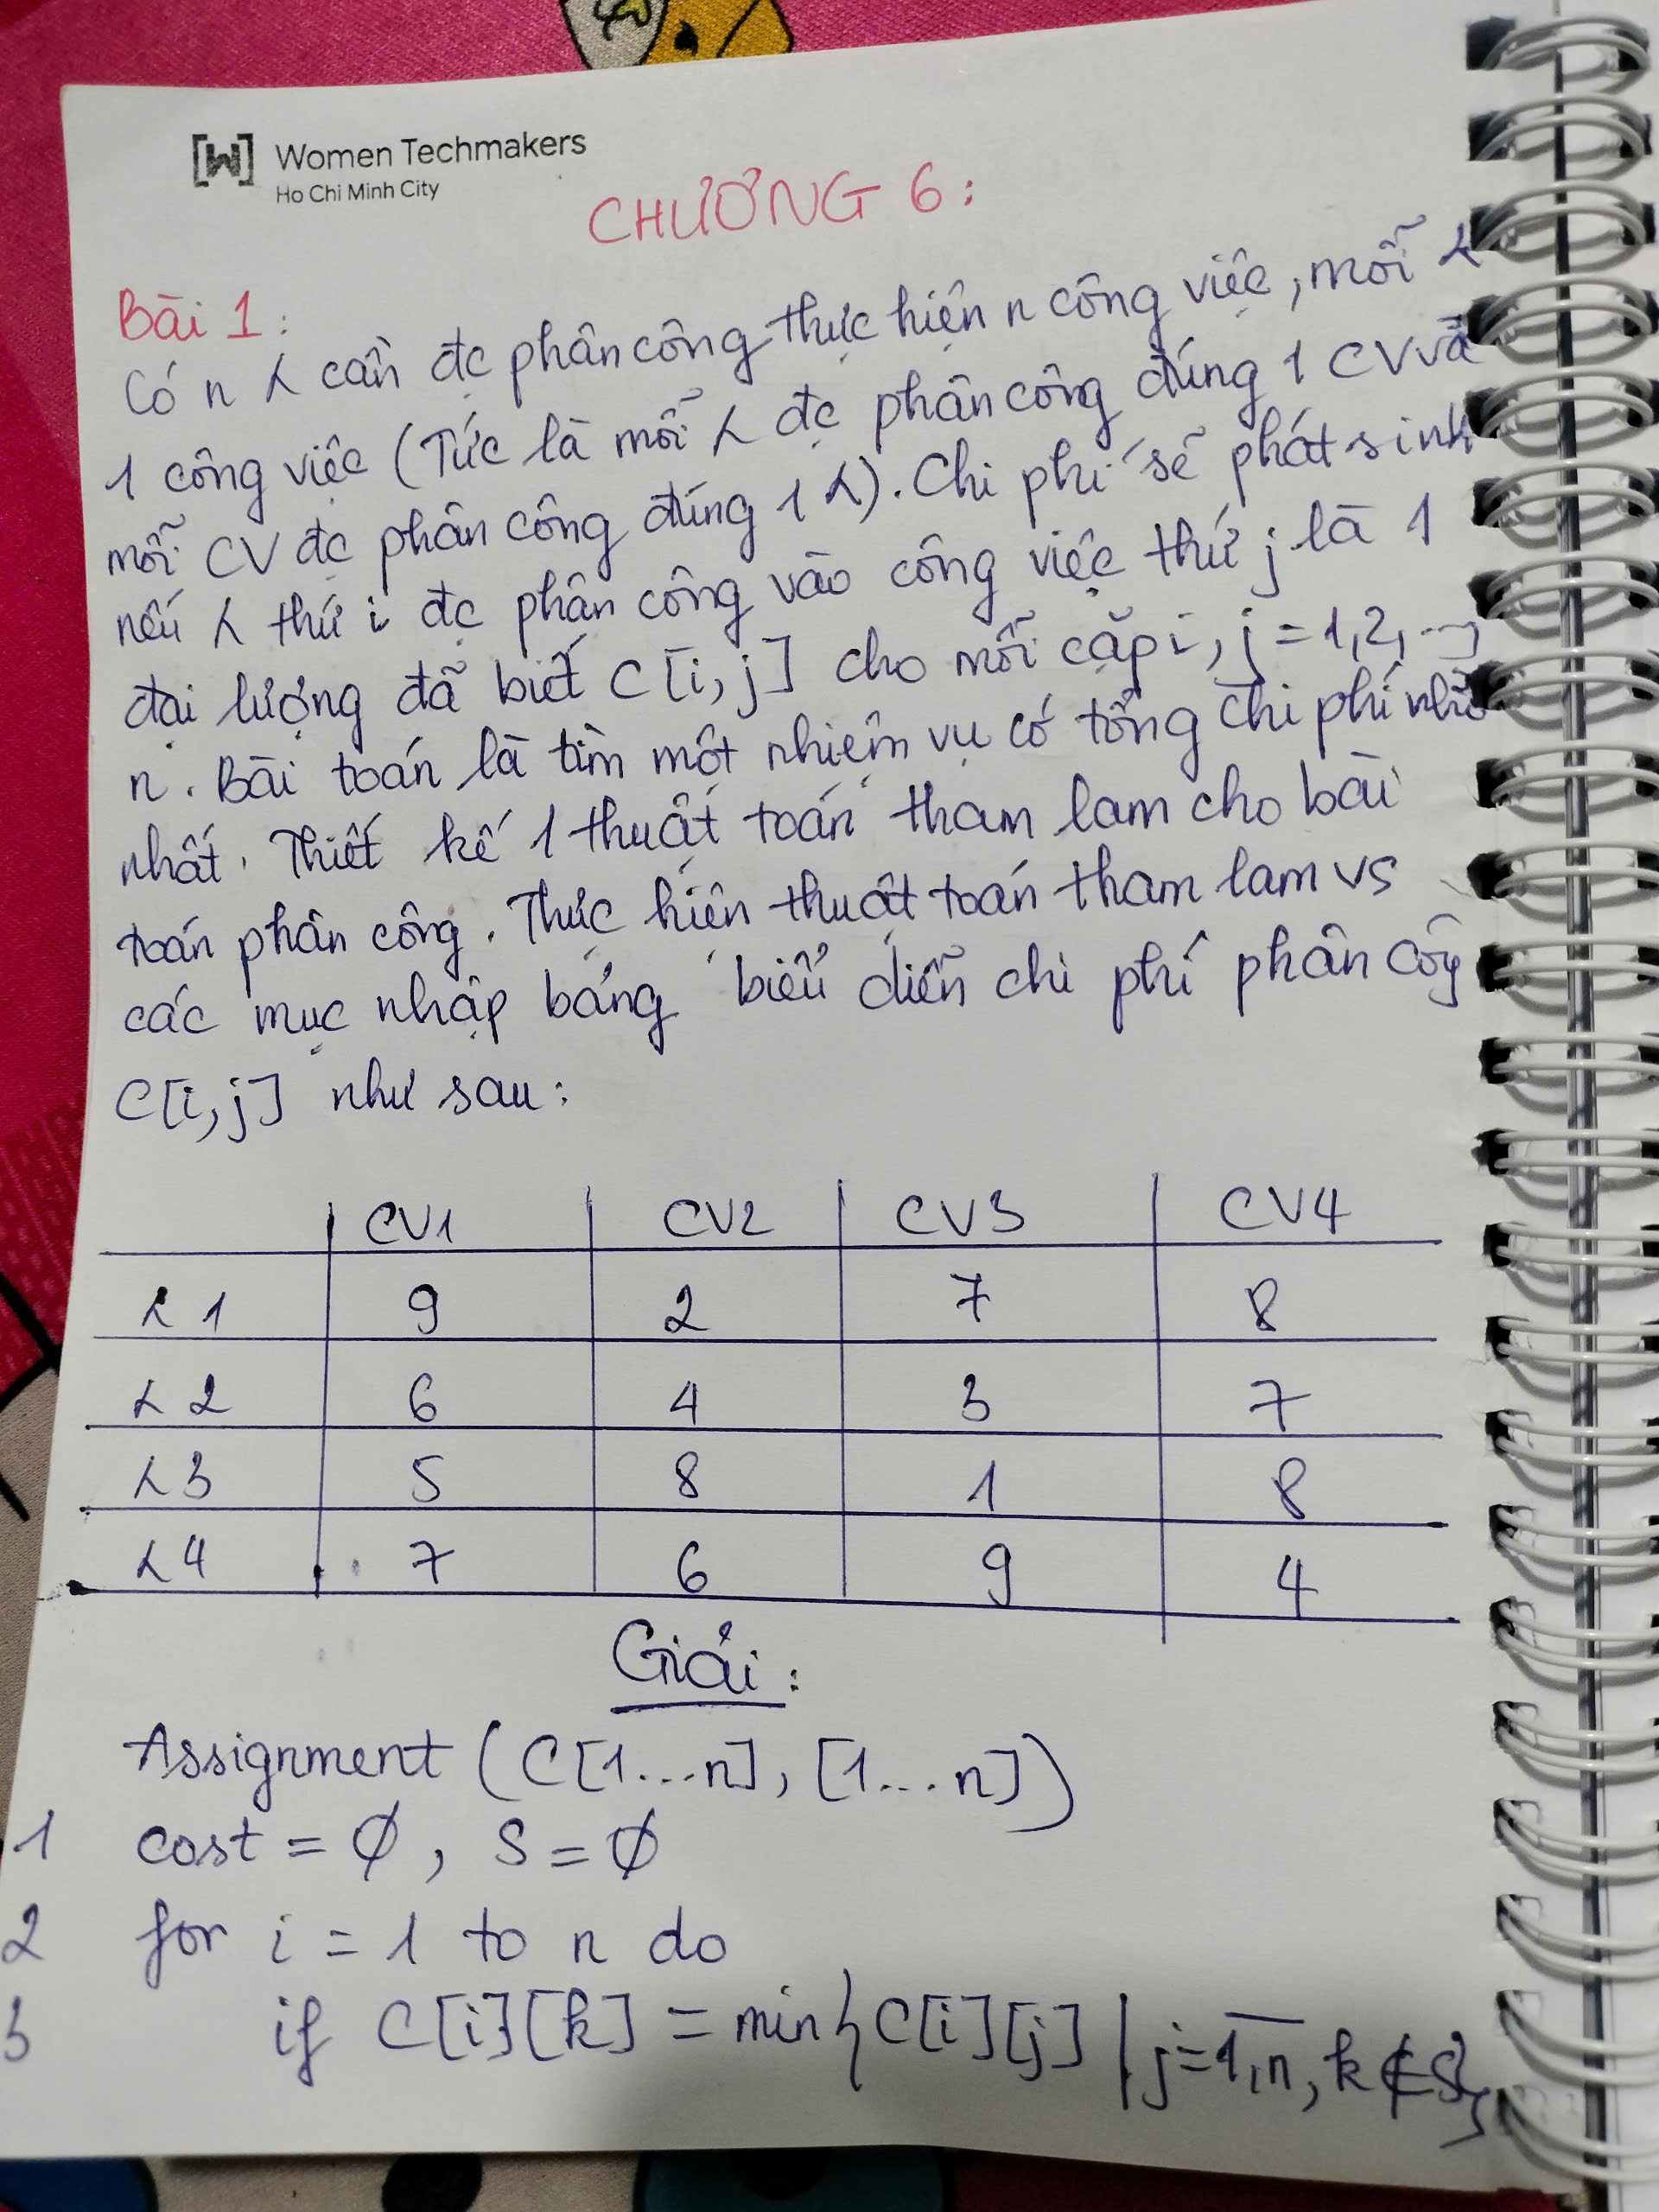 [W] Women Techmakers
Ho Chi Minh City
CHƯƠNG 6:
Bài 1:
Có n λ cần đc phân công thực hiện n công việc, mỗi λ
1 công việc (Tức là mỗi λ đc phân công đúng 1 CV và
mỗi CV đc phân công đúng 1 λ). Chi phí sẽ phát sinh
nếu λ thứ i đc phân công vào công việc thứ j là 1
đại lượng đã biết C[i,j] cho mỗi cặp i, j = 1,2, ...,
n. Bài toán là tìm một nhiệm vụ có tổng chi phí nhỏ
nhất. Thiết kế 1 thuật toán tham lam cho bài
toán phân công. Thực hiện thuật toán tham lam vs
các mục nhập bảng biểu diễn chi phí phân công
C[i,j] như sau:
CV1 CV2 CV3 CV4
λ1 9 2 7 8
λ2 6 4 3 7
λ3 5 8 1 8
λ4 7 6 9 4
Giải:
Assignment (C[1...n], [1...n])
1 cost = Ø, S = Ø
2 for i = 1 to n do
3 if C[i][k] = min{C[i][j] | j = 1,n, k ∉ S}